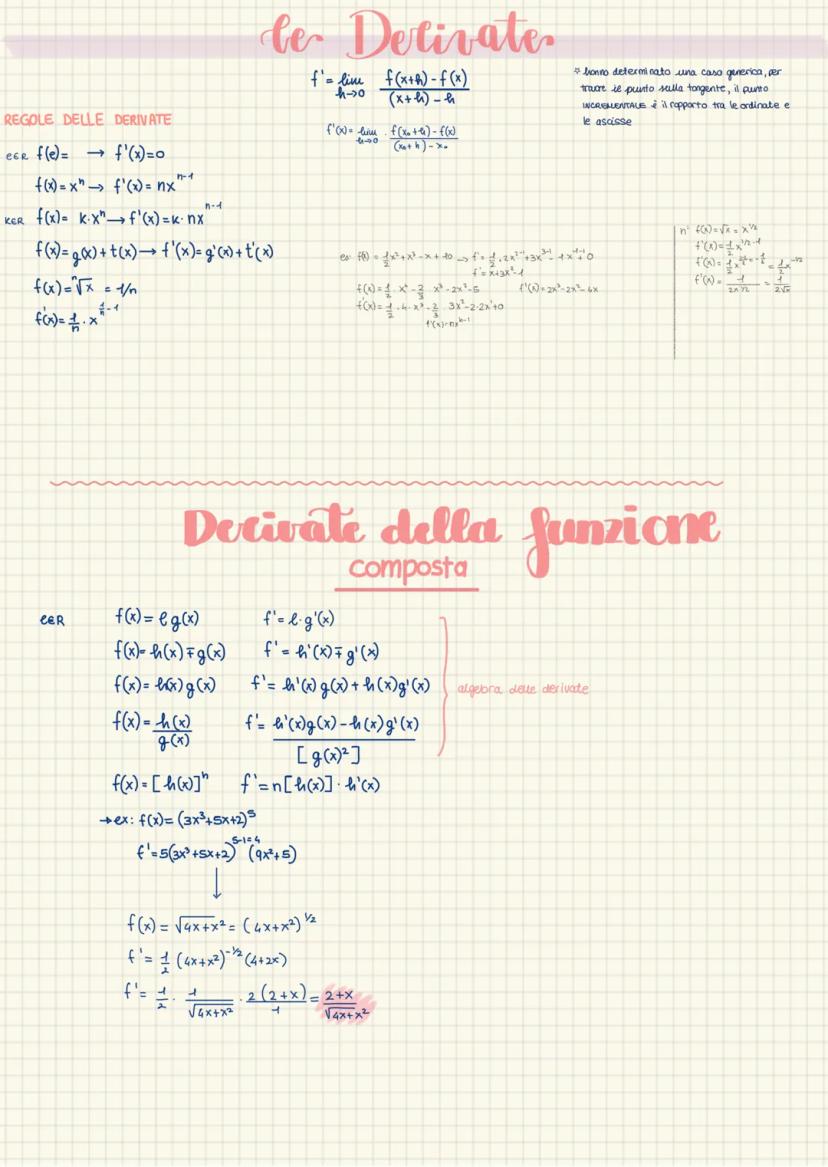 le Derivate
f' = lim h→0 f(x+h) - f(x) / (x+h) - h
f'(x) = lim h→0 · f(x₀+h) - f(x) / (x₀+h) - x₀
* hanno determinato una caso generica, per
trarre il punto sulla tangente, il punto
INCREMENTALE è il rapporto tra le ordinate e
le ascisse
REGOLE DELLE DERIVATE
f(e) = → f'(x) = 0
f(x) = xⁿ → f'(x) = nx^(n-1)
KER f(x) = k·xⁿ → f'(x) = k·nx^(n-1)
f(x) = g(x) + t(x) → f'(x) = g'(x) + t'(x)
f(x) = ⁿ√x = 1/n
f'(x) = 1/n · x^(1/n - 1)
es: f(x) = 1/2 x² + x³ - x + 10 → f' = 1/2 · 2x^(2-1) + 3x^(3-1) - 1x^(1-1) + 0
f' = x + 3x² - 1
f(x) = 1/2 · x⁴ - 2/3 x³ - 2x² - 5 f'(x) = 2x³ - 2x² - 4x
f(x) = 1/2 · 4 · x³ - 2/3 · 3x² - 2·2x¹ + 0
f'(x) = nx^(n-1)
n° f(x) = √x = x^(1/2)
f'(x) = 1/2 x^(1/2 - 1)
f'(x) = 1/2 x^(1-2/2 = -1/2) = 1/2 x^(-1/2)
f'(x) = 1 / 2x^(1/2) = 1 / 2√x
Derivate della funzione
composta
f(x) = l g(x) f' = l · g'(x)
f(x) = h(x) ∓ g(x) f' = h'(x) ∓ g'(x)
f(x) = h(x) g(x) f' = h'(x) g(x) + h(x) g'(x)
algebra delle derivate
f(x) = h(x) / g(x) f' = h'(x) g(x) - h(x) g'(x) / [g(x)²]
f(x) = [h(x)]ⁿ f' = n[h(x)] · h'(x)
→ ex: f(x) = (3x³+5x+2)⁵
f' = 5(3x³+5x+2)^(5-1=4) (9x²+5)
↓
f(x) = √4x+x² = (4x+x²)^(1/2)
f' = 1/2 (4x+x²)^(-1/2) (4+2x)
f' = 1/2 · 1/√4x+x² · 2(2+x)/1 = 2+x/√4x+x²